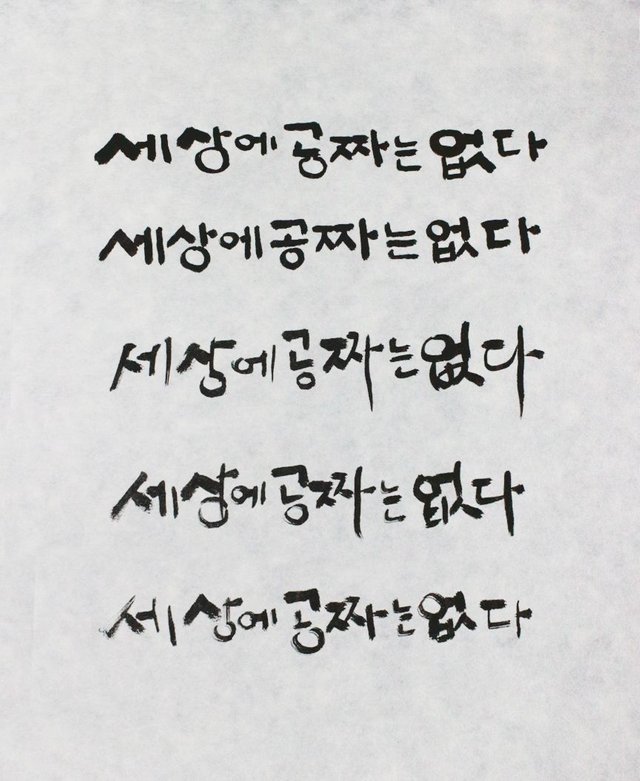 세상에 공짜는 없다
세상에 공짜는 없다
세상에 공짜는 없다
세상에 공짜는 없다
세상에 공짜는 없다